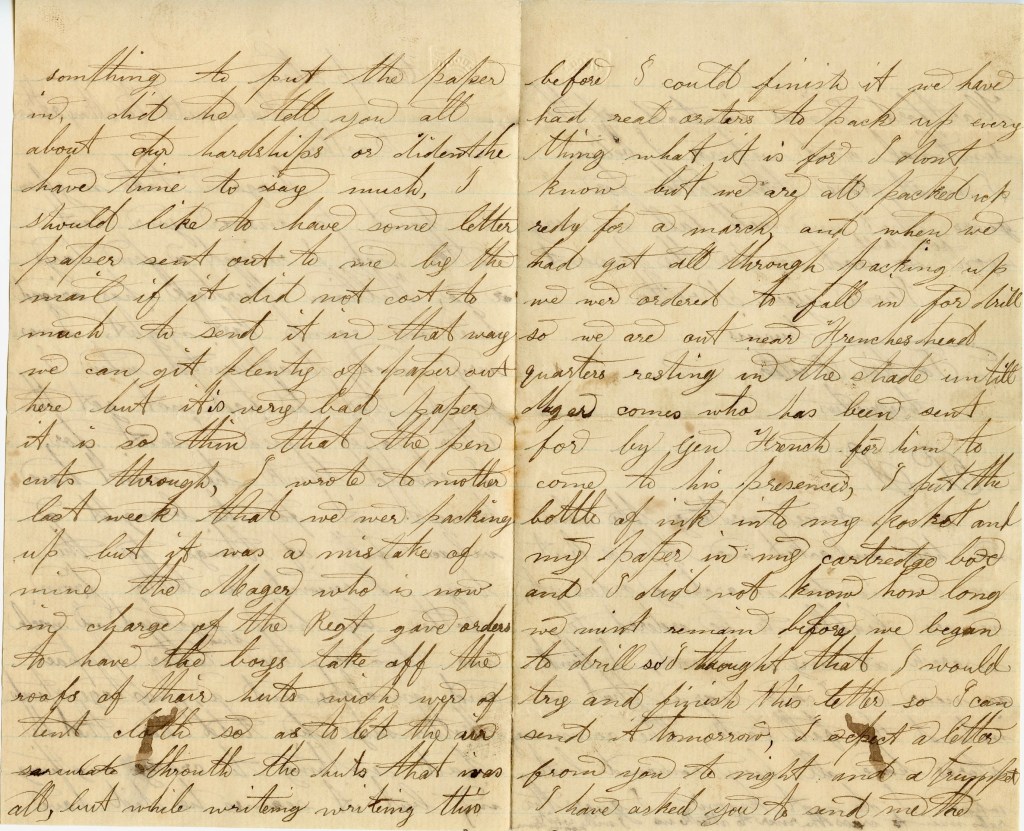 somthing to put the paper
in, did he tell you all
about our hardships or dident he
have time to say much, I
should like to have some letter
paper sent out to me by the
mail if it did not cost to
much to send it in that way
we can git plenty of paper out
here but it is very bad paper
it is so thin that the pen
cuts through, I wrote to mother
last week that we wer packing
up but it was a mistake of
mine the Mager who is now
in charge of the Regt gave orders
to have the boys take off the
roofs of thair huts wich wer of
tent cloth so as to let the air
throuth the huts that was
all, but while writeing writing this
before I could finish it we have
had real orders to pack up every
thing what it is for I dont
know but we are all packed up
redy for a march, and when we
had got all through packing up
we wer ordered to fall in for drill
so we are out near Frenches head
quarters resting in the shade untill
Mager comes who has been sent
for by Gen French for him to
come to his presence, I put the
bottle of ink into my pocket and
my paper in my cartredge box
and I did not know how long
we must remain before we began
to drill so I thought that I would
try and finish this letter so I can
send it tomorrow, I expect a letter
from you to night and a
I have asked you to send me the